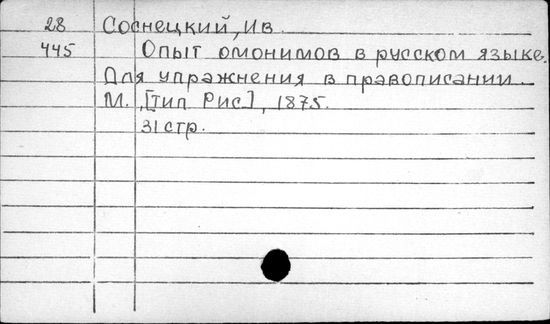 28 Соснецкий, Ив.
445 Опыт омонимов в русском языке.
Для упражнения в правописании.
М., [тип Рис], 1875.
31 стр.